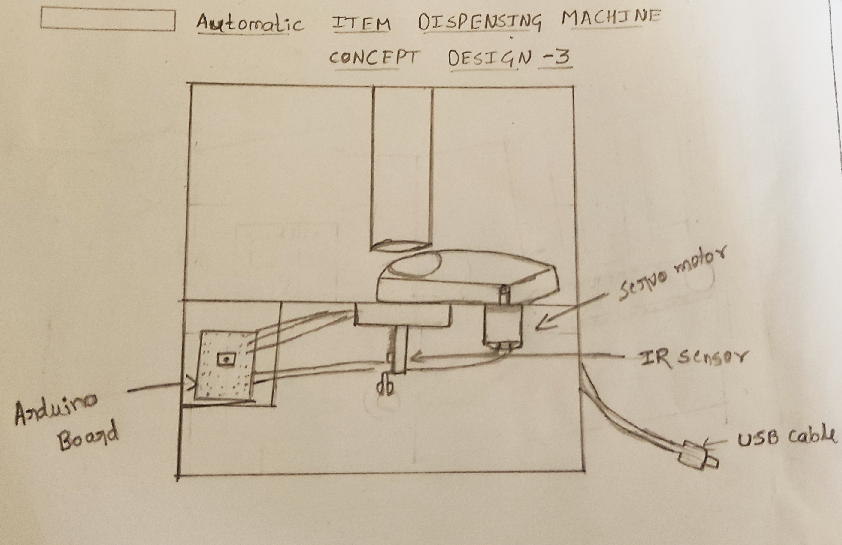 Automatic ITEM DISPENSING MACHINE
CONCEPT DESIGN -3
Servo motor
IR Sensor
Arduino
Board
USB Cable